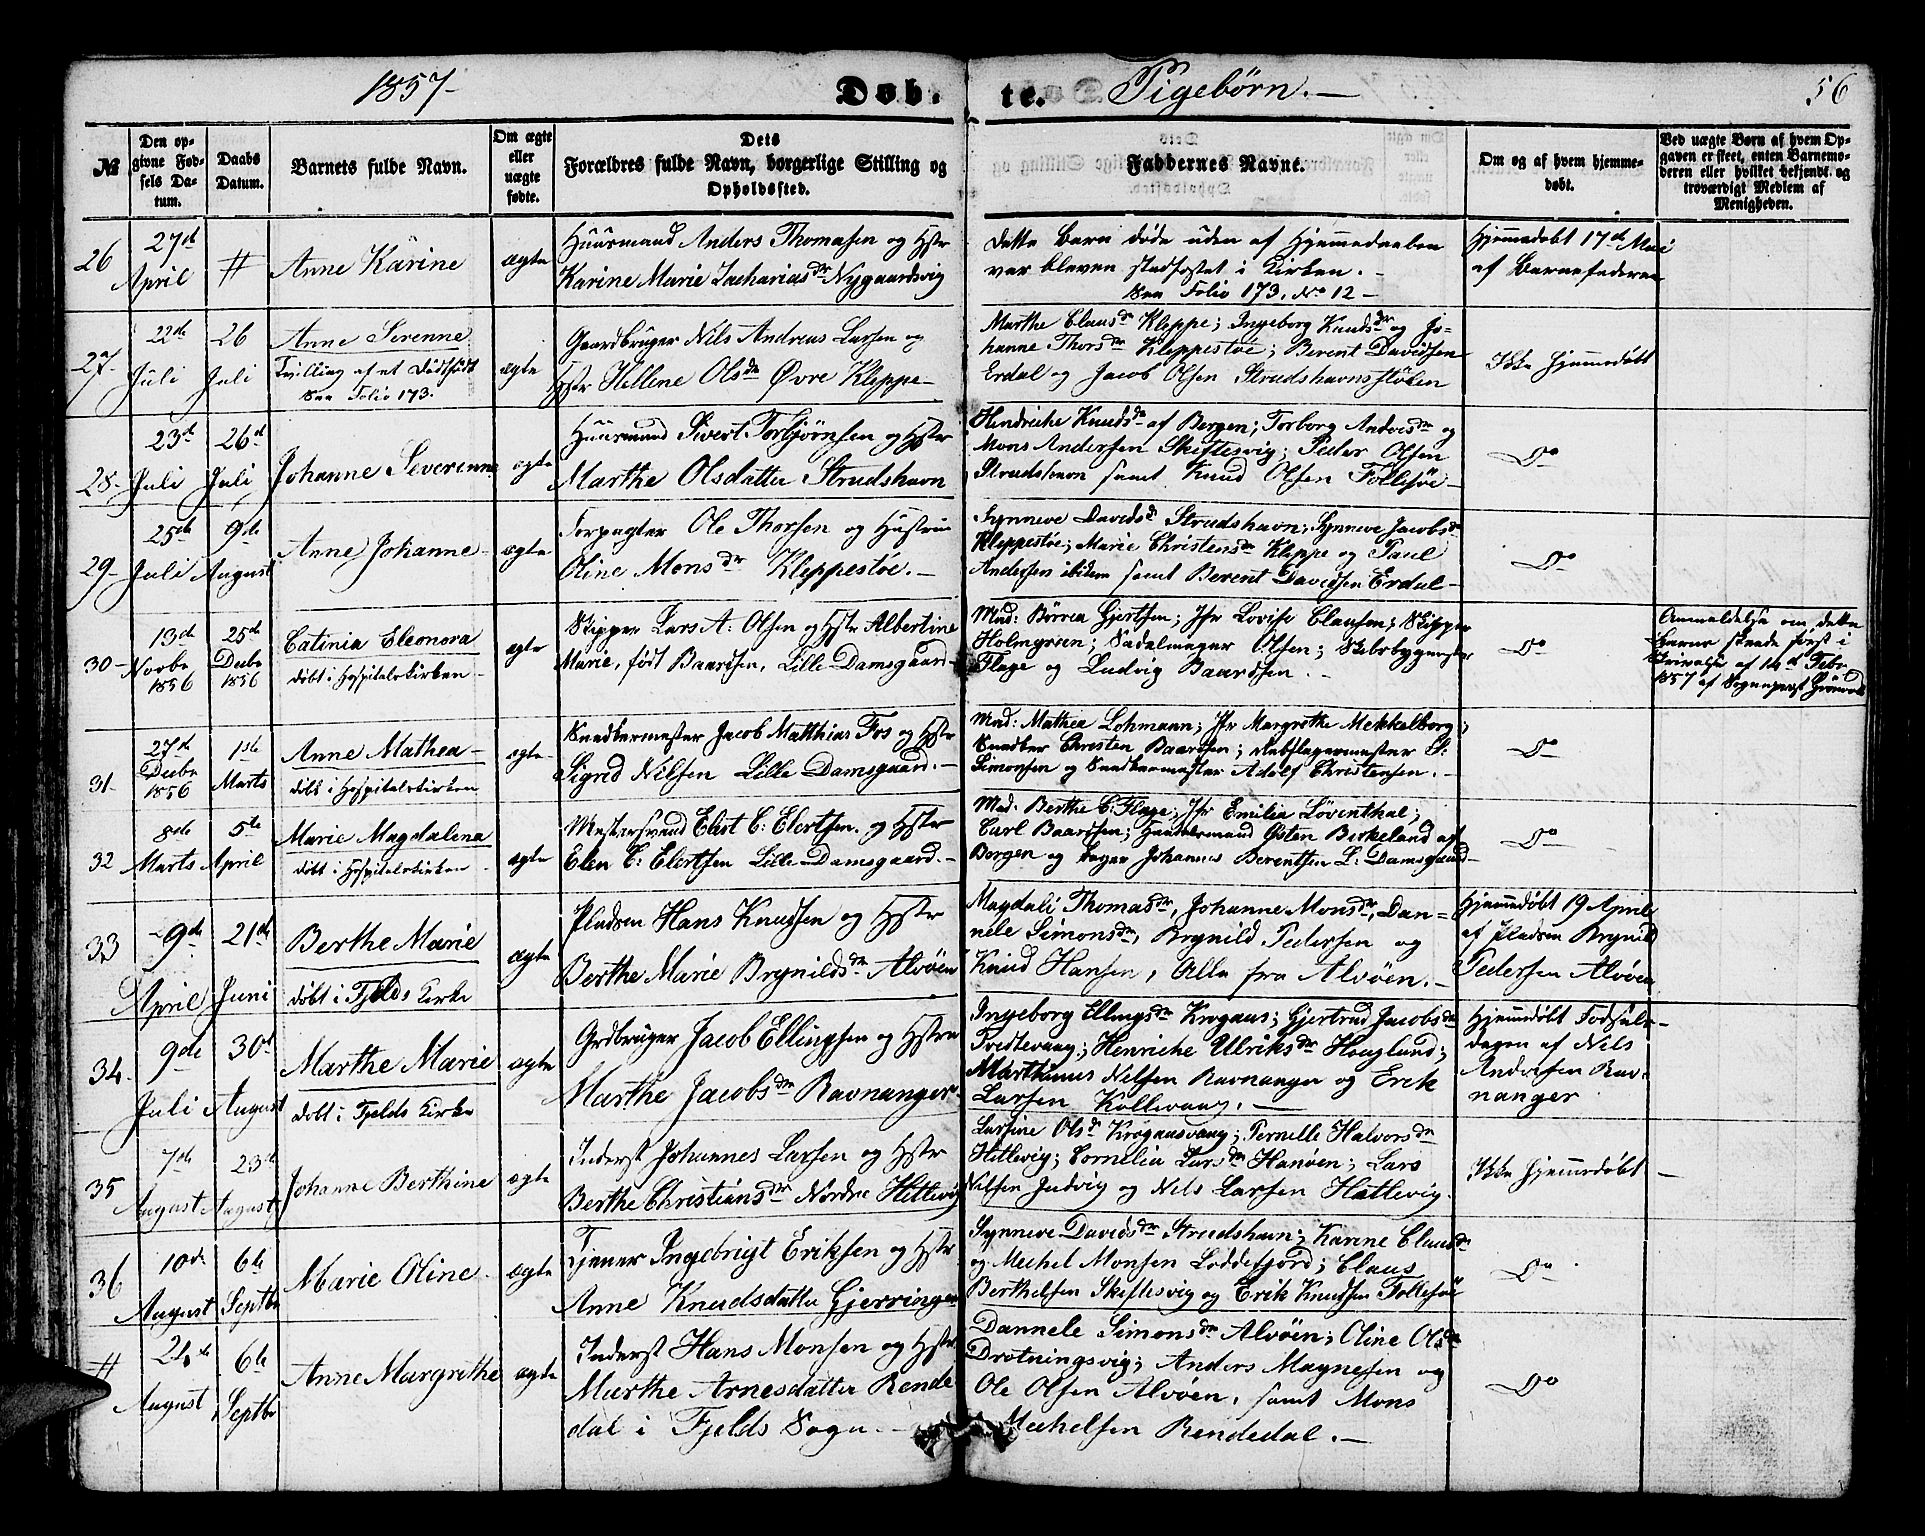 1857-
Døb-
te.
Pigebørn.-
56
№
Den op-
givne Fød-
sels Da-
tum.
Daabs
Datum.
Barnets fulde Navn.
Om ægte
eller
uægte
fødte.
Dets
Forældres fulde Navn, borgerlige Stilling og
Opholdssted.
Faddernes Navne.
Om og af hvem hjemme-
døbt.
Ved uægte Børn af hvem Op-
gaven er skeet, enten Barnemo-
deren eller hvilket bekjendt og
troværdigt Medlem af
Menigheden.
26
27de
April
#
Anne Karine
ægte
Huusmand Anders Thomasen og Hstr
Karine Marie Zacharias dr Nygaardsvig
Dette Barn døde uden af Hjemmedaaben
var bleven stadfæstet i Kirken.-
Saa Folio 173. No 12-
Hjemmedøbt 17de Mai
af Barnefaderen
27-
22de
Juli
26
Juli
Anne Serenne
Tvilling af et Dødfødt
Saa Folio 173.
ægte
Gaardbruger Nils Andreas Larsen og
Hstr Hellene Olsdr Øvre Kleppe-
Marthe Clausdr Kleppe; Ingeborg Knudsdr og Jo-
hanne Thorsdr Kleppestøe; Berent Davidsen
Erdal og Jacob Olsen Strudshavns
Ikke hjemmedøbt
28-
23de
Juli
26de
Juli
Johanne Severinne
ægte
Huusmand Sivert Torbjørnsen og Hstr
Marthe Olsdatter Strudshavn
Hendriche Knudsdr af Bergen; Torborg Andersdr og
Mons Andersen Skiftesvig; Peder Olsen
Strudshavn samt Knud Olsen Follesøe-
Do
29-
25de
Juli
9de
August
Anne Johanne
ægte
Forpagter Ole Thorsen og Hustrue
Oline Monsdr Kleppestøe.-
Synneve Davidsd Strudshavn; Synneve Jacobsdr
Kleppestøe; Marie Christensdr Kleppe og Paul
Andersen ibidem samt Berent Davidsen Erdal-
Do
30-
13de
Novbr
1856
25de
Decbr
1856
Catinia Eleonora
døbt i Hospitalskirken-
ægte
Skipper Lars A: Olsen og Hstr Albertine
Marie, født Baardsen, Lille Damsgaard-
Mad: Børrea Gjertsen; Jfr Lovise Clausen; Skipper
Holmgreen; Sadelmager Olsen; Skibsbygmester
Flage og Ludvig Baardsen.-
Do
Anmeldelse om dette
Barn skeede først i
Skrivelse af 14de Febr
1857 af Sogneprest
31-
27de
Decbr
1856
1ste
Marts
Anne Mathea-
døbt i Hospitalskirken
ægte-
Snedkermester Jacob Matthias Fos og Hstr
Sigrid Nilsen Lille Damsgaard.-
Mad: Mathea Lohmann; Jfr Margrethe Mekkelborg;
Snedker Christen Baardsen; Rebslagermester S:
Simonsen og Snedkermester Adolf Christensen.-
Do
32
8de
Marts
5te
April
Marie Magdalena
døbt i Hospitalskirken
ægte
Mestersvend Elert C: Elertsen og Hstr
Elen C: Elertsen Lille Damsgaard.-
Mad: Berthe C: Flage; Jfr Emilia Löventhal;
Carl Baardsen; Handelsmand Østen Birkeland af
Bergen og Bager Johannes Berentsen L: Damsgaard-
Do
33
9de
April
21de
Juni
Berthe Marie
døbt i Fjelds Kirke
ægte
Pladsm Hans Knudsen og Hstr
Berthe Marie Brynildsdr Alvøen
Magdali Thomasdr, Johanne Monsdr, Dan-
nele Simonsdr, Brynild Pedersen og
Knud Hansen, Alle fra Alvøen.-
Hjemmedøbt 19 April
af Pladsm Brynild
Pedersen Alvøen
34-
9de
Juli
30d
August
Marthe Marie
døbt i Fjelds Kirke
ægte
Grdbruger Jacob Ellingsen og Hstru
Marthe Jacobsdr Ravnanger-
Ingeborg Ellingsdr Krogaas; Gjertrud Jacobsdr
Tvedtevaag; Henriche Ulriksdr Hauglund;
Marthinus Nilsen Ravnanger og Erik
Larsen Kollevaag.-
Hjemmedøbt Fødsels-
dagen af Nils
Andersen Rav-
nanger
35
7de
August
23de
August
Johanne Berthine
ægte
Inderst Johannes Larsen og Hstr
Berthe Christiansdr Nordre Hetlevig
Larsine Olsdr Krogaasvaag; Pernelle Halvorsdr
Hetlevig; Cornelia Larsdr Hanøen; Lars
Nilsen Judvig og Nils Larsen Hatlevig.
Ikke hjemmedøbt
36
10de
August
6te
Septbr
Marie Oline
ægte
Tjener Ingebrigt Eriksen og Hstr
Anne Knudsdatter Gjerringen
Synneve Davidsdr Strudshavn; Karine Clausdr
og Mechel Monsen Loddefjord; Claus
Berthelsen Skiftesvig og Erik Knudsen Follesøe
Do
#
24de
August
6te
Septbr
Anne Margrethe
ægte
Inderst Hans Monsen og Hstr
Marthe Arnesdatter Rende
dal i Fjelds Sogn.-
Dannele Simonsdr Alvøen; Oline Olsdr
Drotningsvig; Anders Magnesen og
Ole Olsen Alvøen, samt Mons
Mechelsen Rendedal.-
Do